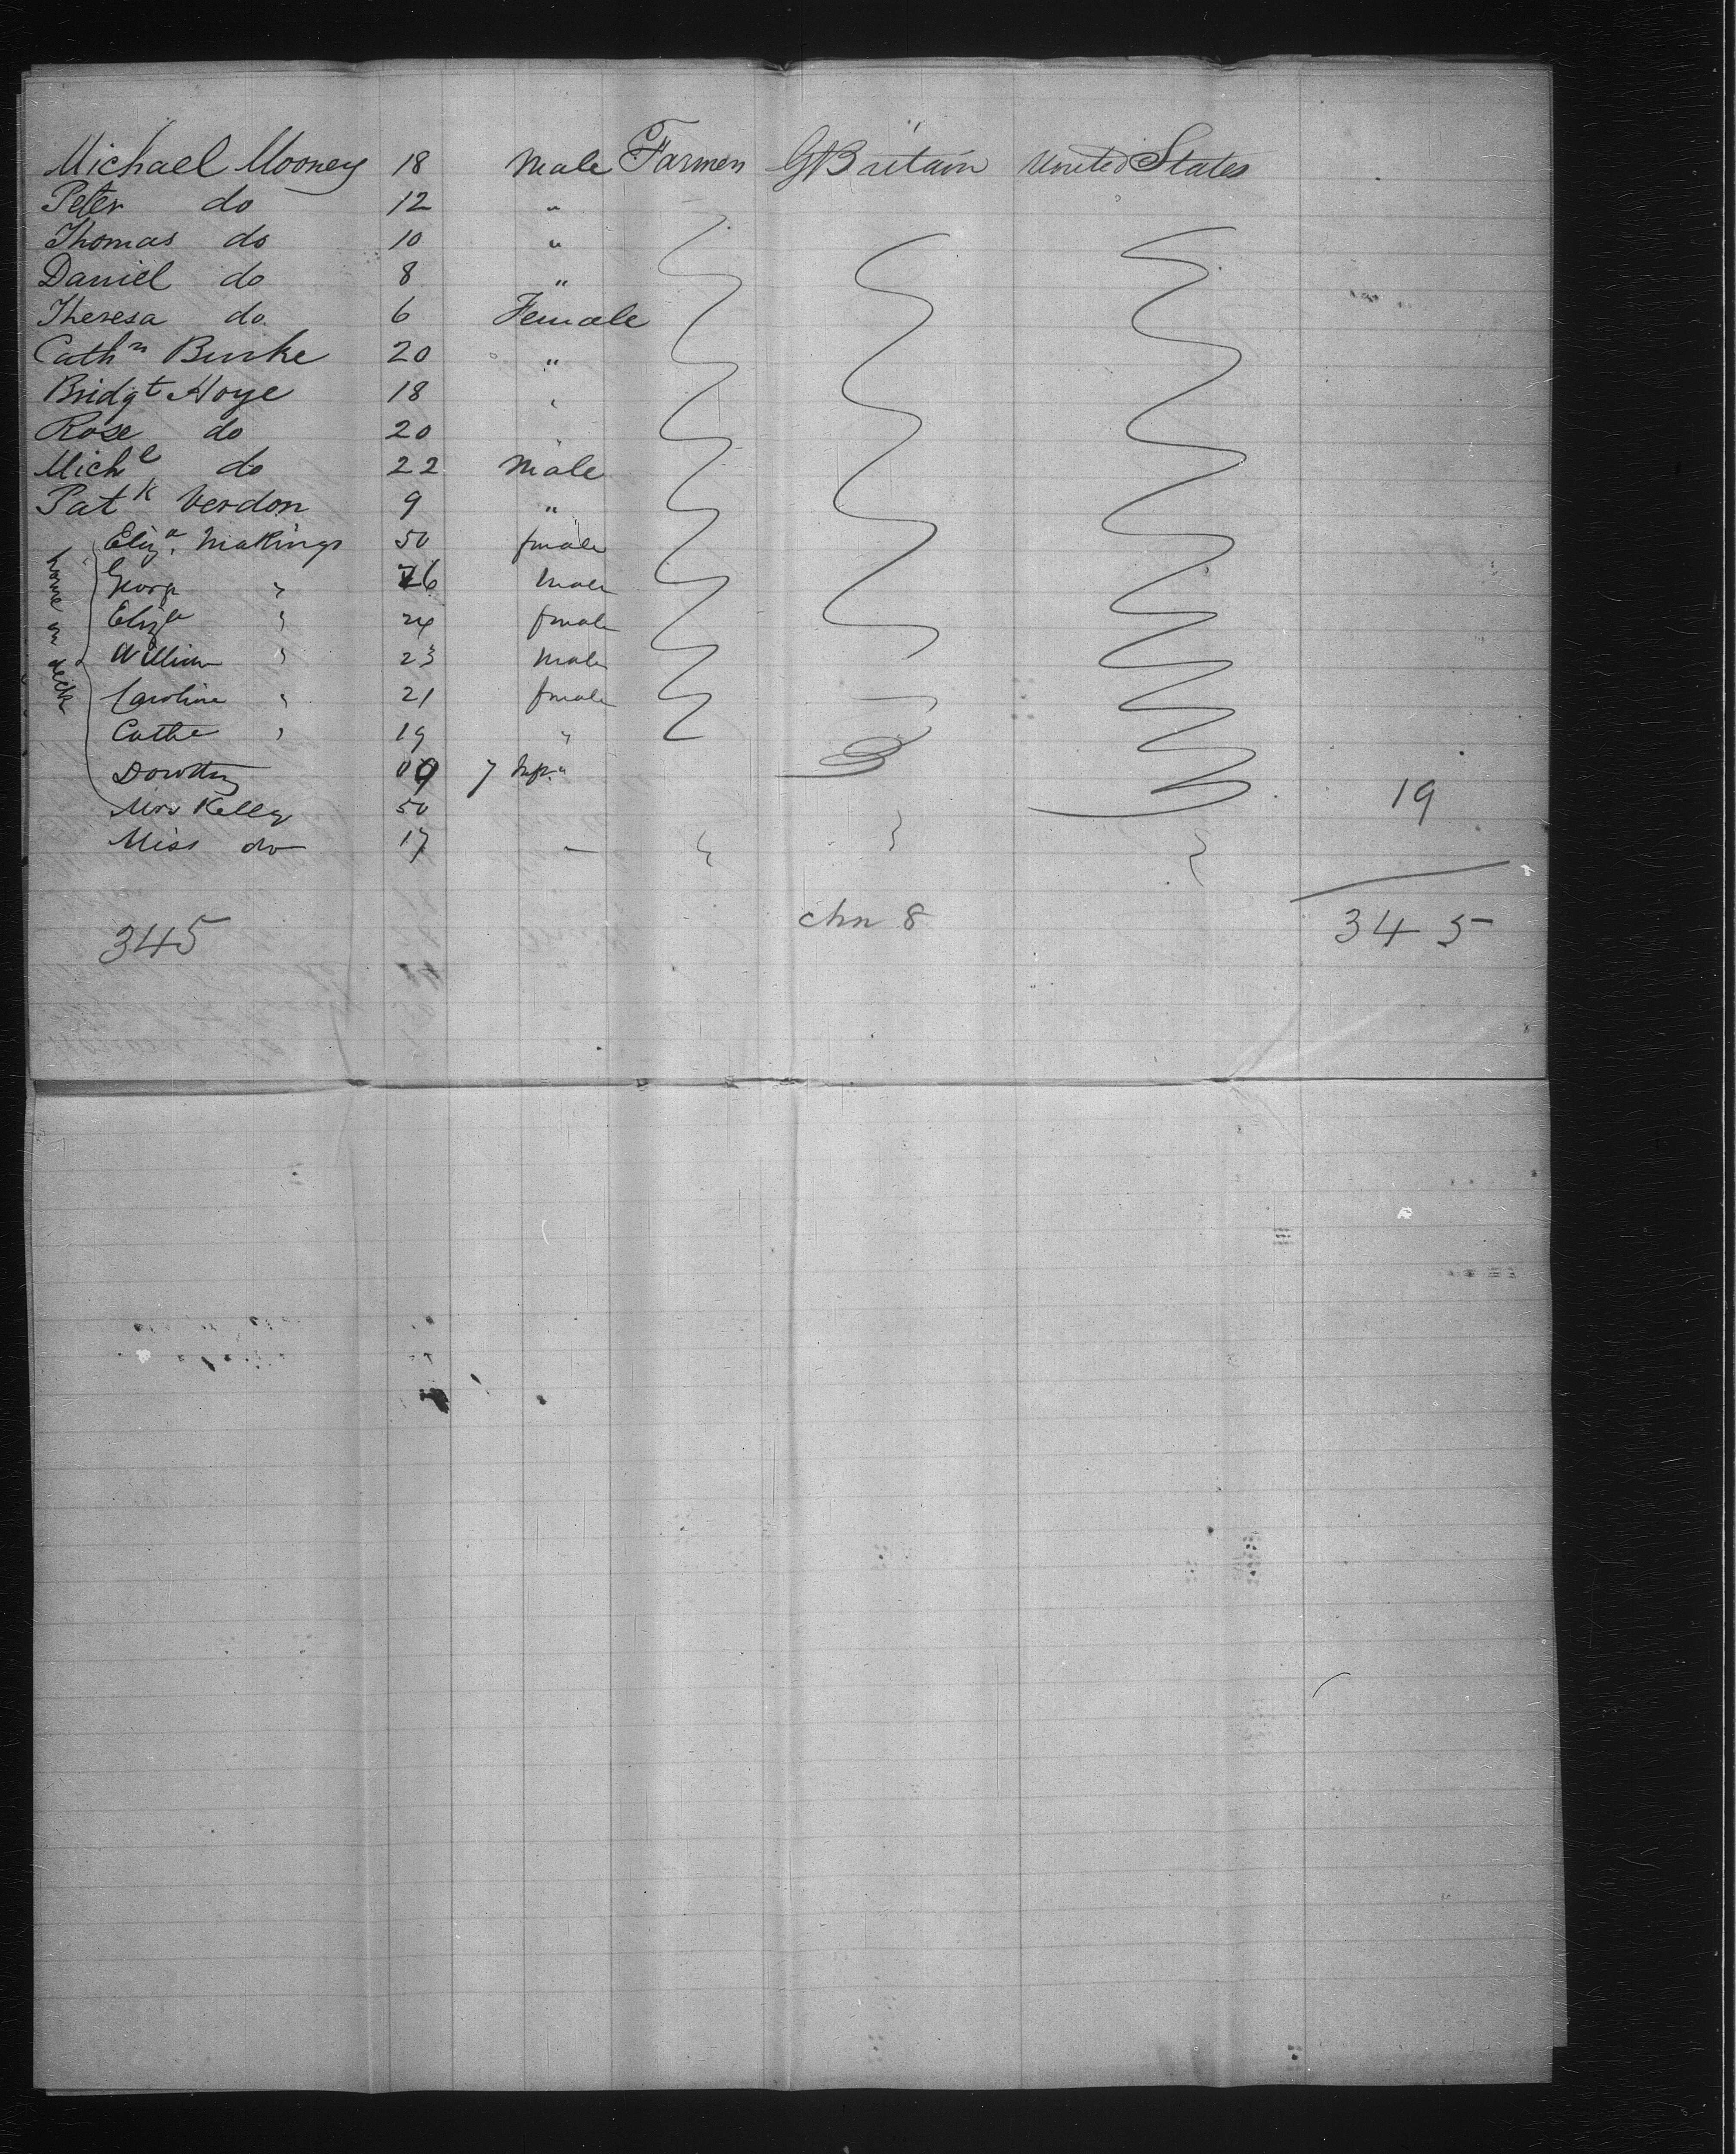 Michael Mooney 18 Male Farmer GtBritain United States
Peter do 12 "
Thomas do 10 "
Daniel do 8 "
Theresa do 6 Female
Cathn Burke 20 "
Bridgt Hoye 18 "
Rose do 20
Michl do 22 Male
Patk Verdon 9 "
Eliza. Makings 50 female
George " 26 Male
Eliza " 24 female
William " 23 Male
Caroline " 21 female
Cathe " 19 "
Dorothy 09
Mrs Kelly 50
Miss do 17 —
house on deck
19
345 chn 8 345